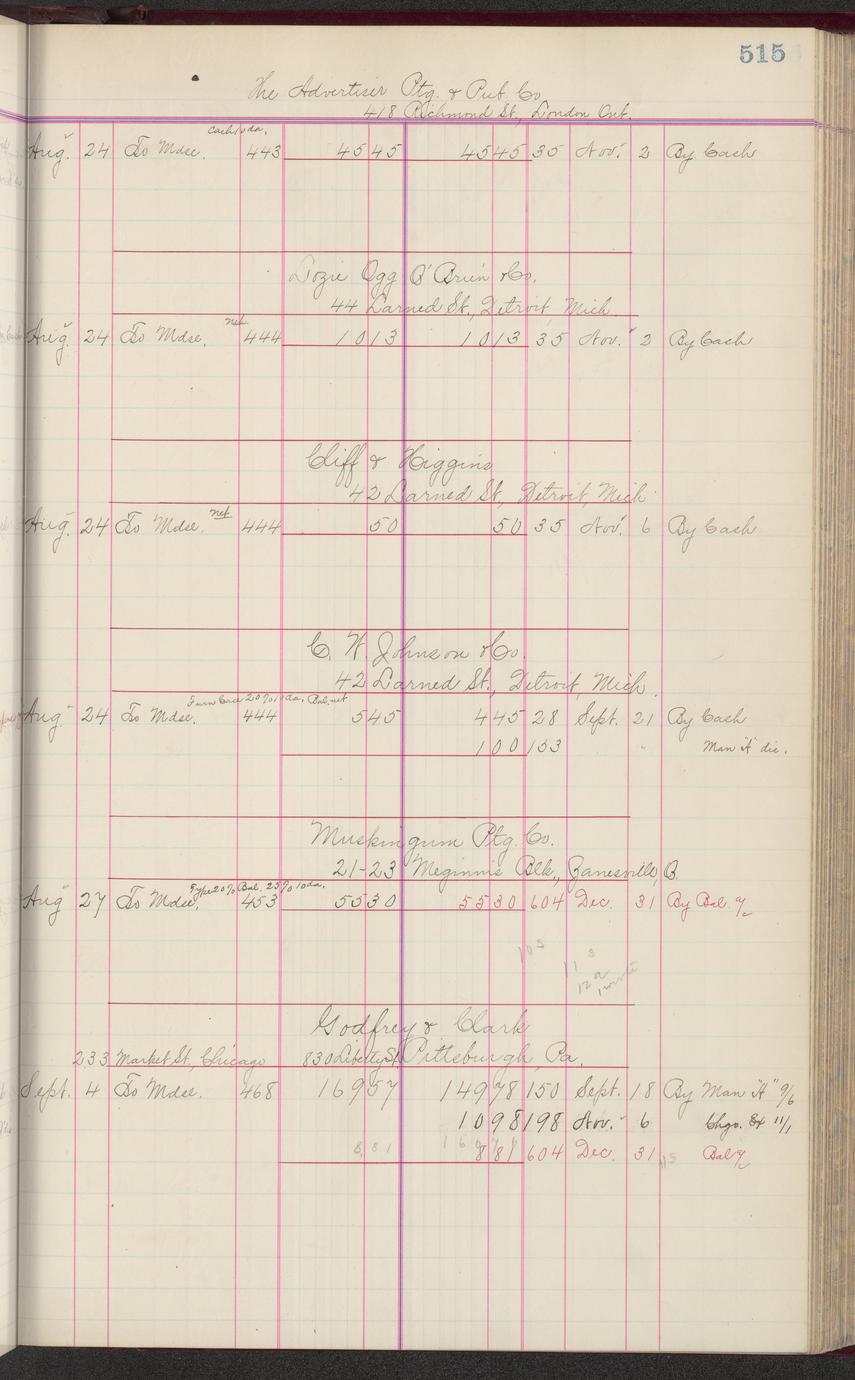 515
The Advertiser Ptg. & Pub. Co.
418 Richmond St., London Ont.
Cash da.
Aug. 24 To Mdse. 443 4545 4545 35 Nov. 2 By Cash
Ogg O'Brien & Co.
44 Larned St., Detroit, Mich.
net
Aug. 24 To Mdse. 444 1013 1013 35 Nov. 2 By Cash
Cliff & Higgins
42 Larned St., Detroit, Mich.
net
Aug. 24 To Mdse. 444 50 50 35 Nov. 6 By Cash
C. W. Johnson & Co.
42 Larned St., Detroit, Mich.
20% da. Bal. net
Aug. 24 To Mdse. 444 545 445 28 Sept. 21 By Cash
100 153 " Man "A" dis.
Muskingum Ptg. Co.
21-23 Meginnis Blk., Zanesville, O.
Type 20% Bal. 25% 10 da.
Aug. 27 To Mdse. 453 5530 5530 604 Dec. 31 By Bal. %
Godfrey & Clark
233 Market St., Chicago 830 Liberty St. Pittsburgh, Pa.
Sept. 4 To Mdse. 468 16957 14978 150 Sept. 18 By Man "A" 9/6
1098 198 Nov. 6 Chgo. Ex 11/1
881 881 604 Dec. 31 Bal %